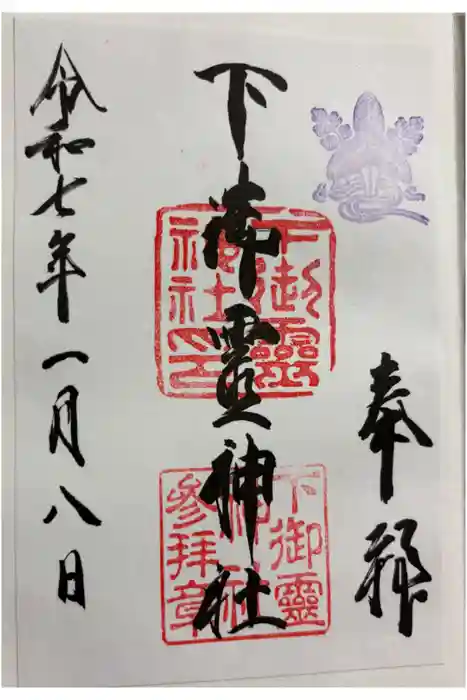 奉拝
下御霊神社
令和七年一月八日
下御靈
下御靈
神社
參拜章